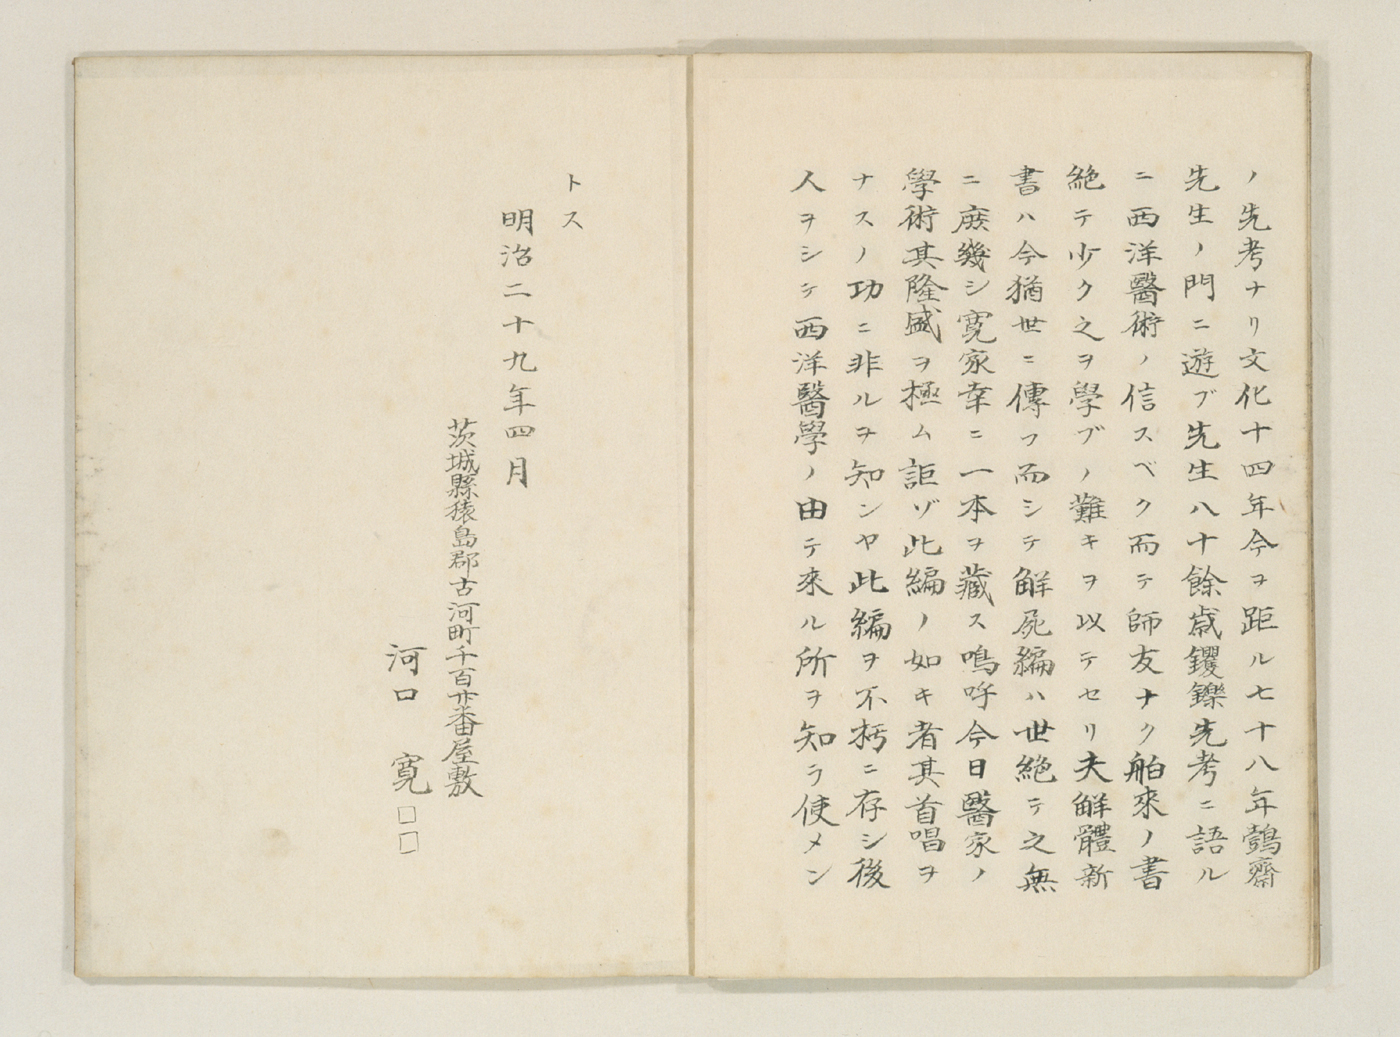 ノ先考ナリ文化十四年今ヲ距ル七十八年鷧齋
先生ノ門ニ遊ブ先生八十餘歳钁鑠先考ニ語ル
ニ西洋醫術ノ信スベク而テ師友ナク舶來ノ書
絶テ少ク之ヲ學ブノ難キヲ以テセリ夫解體新
書ハ今猶世ニ傳フ而シテ解屍編ハ世絶テ之無
ニ庶幾シ寛家幸ニ一本ヲ藏ス嗚呼今日醫家ノ
學術其隆盛ヲ極ム詎ゾ此編ノ如キ者其首唱ヲ
ナスノ功ニ非ルヲ知ンヤ此編ヲ不朽ニ存シ後
人ヲシテ西洋醫學ノ由テ來ル所ヲ知ラ使メン
トス
明治二十九年四月
茨城縣猿島郡古河町千百廾番屋敷
河口 寛□□